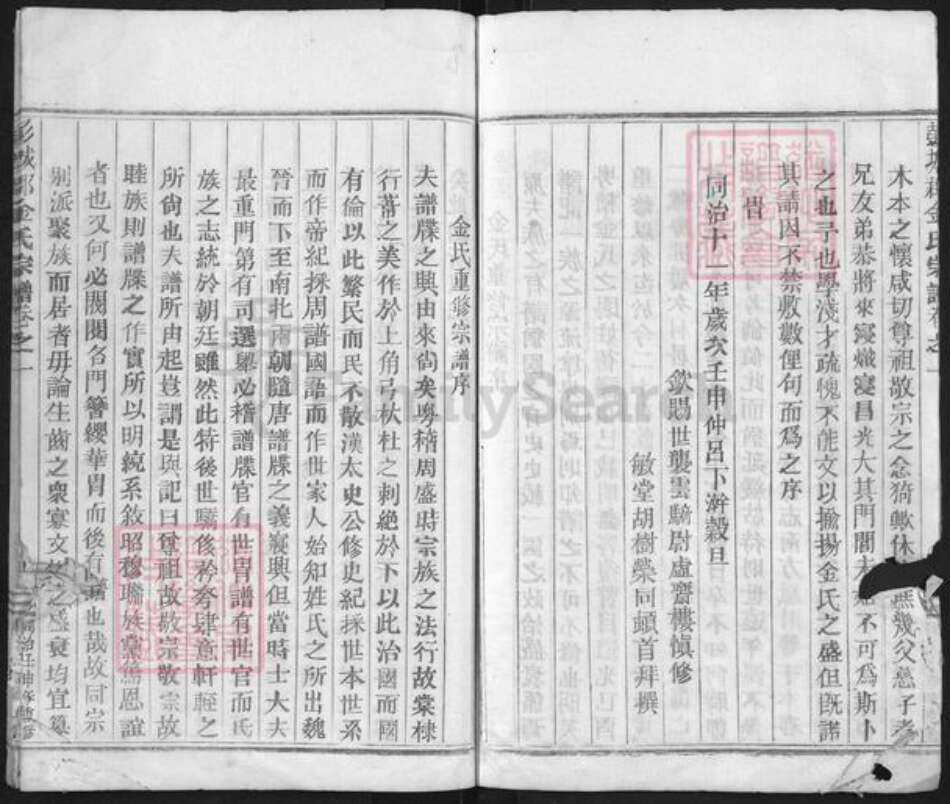 彭城郡金氏宗譜卷之一
木本之懷咸切尊祖敬宗之念猗歟休
幾父慈子孝
兄友弟恭將來寖熾寖昌光大其門閭夫
不可爲斯卜
之也予也學淺才疏愧不能文以揄揚金氏之盛但旣諾
其請因不禁敷數俚句而爲之序
旹
同治十一年歲次壬申仲呂下澣穀旦
欽賜世襲雲騎尉虛齋樓愼修
敏堂胡樹榮同頓首拜撰
金氏重修宗譜序
夫譜牒之興由來尙矣粤稽周盛時宗族之法行故棠棣
行葦之美作於上角弓杕杜之刺絶於下以此治國而國
有倫以此繁民而民不散漢太史公修史紀採世本世系
而作帝紀採周譜國語而作世家人始知姓氏之所出魏
晉而下至南北兩朝隨唐譜牒之義寖興但當時士大夫
最重門第有司選舉必稽譜牒官有世胄譜有世官而氏
族之志統於朝廷雖然此特後世驕後矜夸肆意軒輊之
所尙也夫譜所由起豈謂是與記曰尊祖故敬宗敬宗故
睦族則譜牒之作實所以明統系敘昭穆聯族黨篤恩誼
者也又何必閥閱名門簪纓華胄而後有譜也哉故同宗
別派聚族而居者毋論生齒之衆寡文
之盛衰均宜纂
彭城郡金氏宗譜卷之一
同治壬申